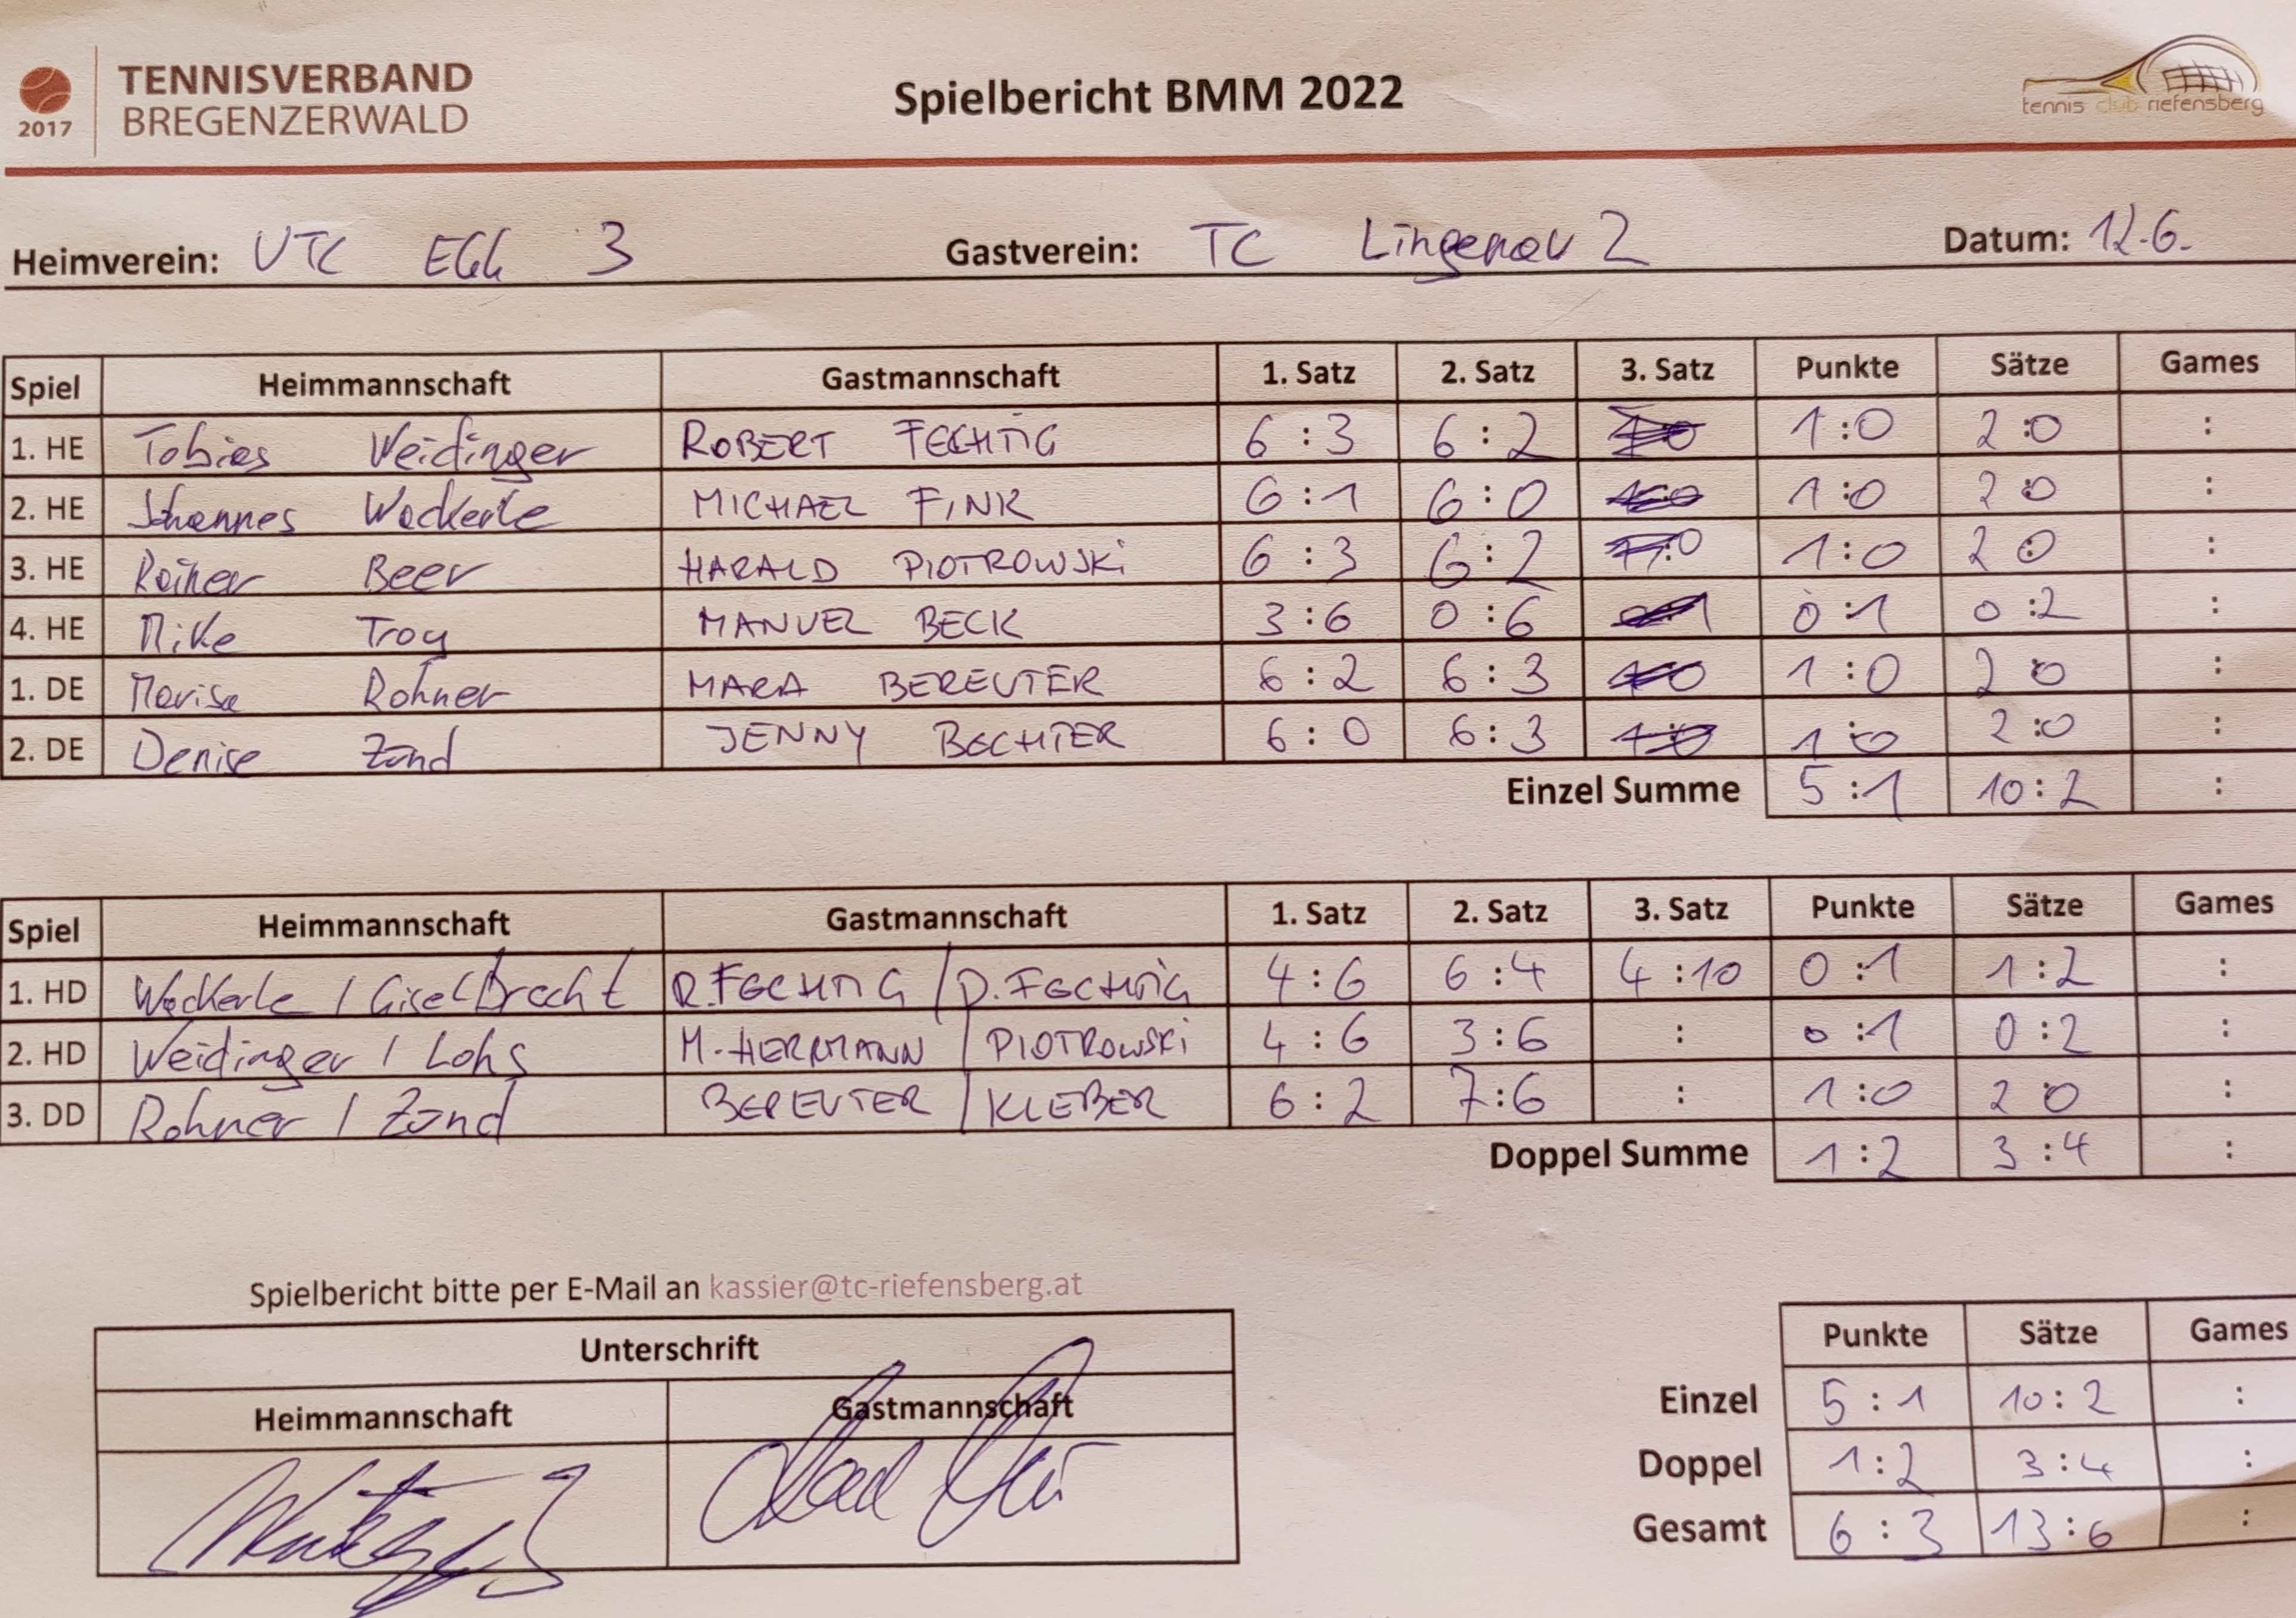 TENNISVERBAND
BREGENZERWALD
2017
Spielbericht BMM 2022
tennis club riefensberg
Heimverein: UTC EGG 3 Gastverein: TC Lingenau 2 Datum: 12.6.
Spiel Heimmannschaft Gastmannschaft 1. Satz 2. Satz 3. Satz Punkte Sätze Games
1. HE Tobias Weidinger ROBERT FECHTIG 6 : 3 6 : 2 1 : 0 2 : 0 :
2. HE Johannes Wackerle MICHAEL FINK 6 : 1 6 : 0 1 : 0 2 : 0 :
3. HE Rainer Beer HARALD PIOTROWSKI 6 : 3 6 : 2 1 : 0 2 : 0 :
4. HE Mike Troy MANUEL BECK 3 : 6 0 : 6 0 : 1 0 : 2 :
1. DE Marisa Rohner MARA BEREUTER 6 : 2 6 : 3 1 : 0 2 : 0 :
2. DE Denise Zand JENNY BECHTER 6 : 0 6 : 3 1 : 0 2 : 0 :
Einzel Summe 5 : 1 10 : 2 :
Spiel Heimmannschaft Gastmannschaft 1. Satz 2. Satz 3. Satz Punkte Sätze Games
1. HD Wackerle / Giselbrecht R. FECHTIG / D. FECHTIG 4 : 6 6 : 4 4 : 10 0 : 1 1 : 2 :
2. HD Weidinger / Lohs M. HERRMANN / PIOTROWSKI 4 : 6 3 : 6 : 0 : 1 0 : 2 :
3. DD Rohner / Zand BEREUTER / KLEBER 6 : 2 7 : 6 : 1 : 0 2 : 0 :
Doppel Summe 1 : 2 3 : 4 :
Spielbericht bitte per E-Mail an kassier@tc-riefensberg.at
Unterschrift
Heimmannschaft Gastmannschaft
Punkte Sätze Games
Einzel 5 : 1 10 : 2 :
Doppel 1 : 2 3 : 4 :
Gesamt 6 : 3 13 : 6 :